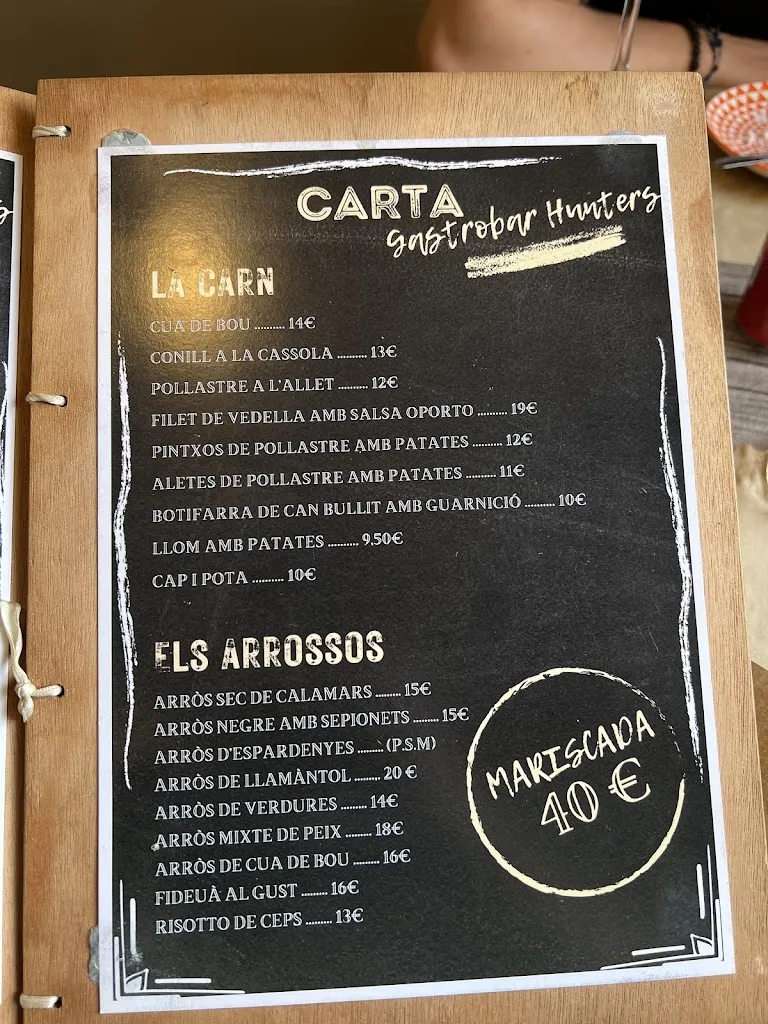 CARTA
Gastrobar Hunters
LA CARN
CUA DE BOU .......... 14€
CONILL A LA CASSOLA .......... 13€
POLLASTRE A L'ALLET .......... 12€
FILET DE VEDELLA AMB SALSA OPORTO .......... 19€
PINTXOS DE POLLASTRE AMB PATATES .......... 12€
ALETES DE POLLASTRE AMB PATATES .......... 11€
BOTIFARRA DE CAN BULLIT AMB GUARNICIÓ .......... 10€
LLOM AMB PATATES .......... 9,50€
CAP I POTA .......... 10€
ELS ARROSSOS
ARRÒS SEC DE CALAMARS ......... 15€
ARRÒS NEGRE AMB SEPIONETS ......... 15€
ARRÒS D'ESPARDENYES ......... (P.S.M)
ARRÒS DE LLAMÀNTOL ......... 20 €
ARRÒS DE VERDURES ......... 14€
ARRÒS MIXTE DE PEIX ......... 18€
ARRÒS DE CUA DE BOU ......... 16€
FIDEUÀ AL GUST ......... 16€
RISOTTO DE CEPS ......... 13€
MARISCADA
40 €